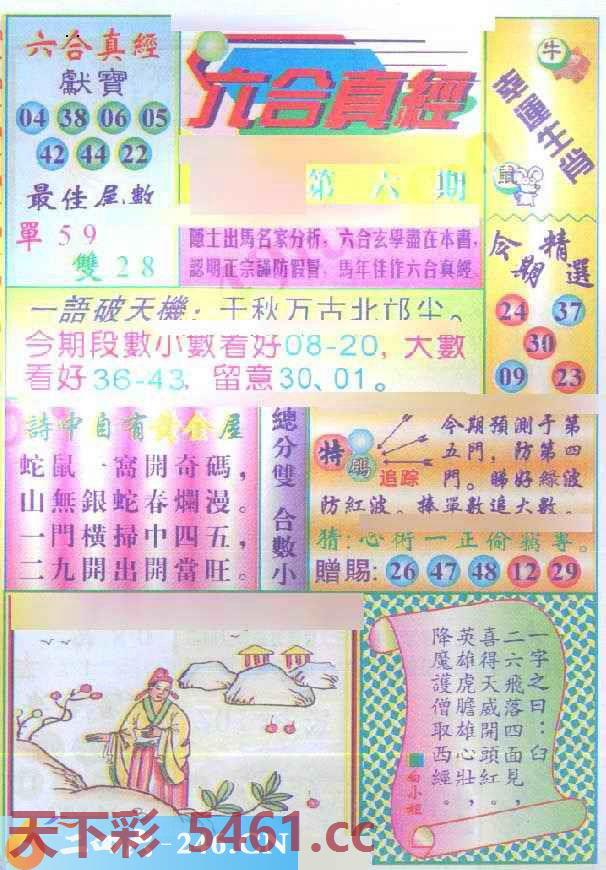 六合真經
獻寶
04 38 06 05
42 44 22
最佳尾數
單59
雙28
六合真經
第六期
隱士出馬名家分析，六合玄學盡在本書，
認明正宗謹防假冒，馬年佳作六合真經。
牛
幸運生肖
鼠
今期精選
24 37
30
09 23
一語破天機：千秋万古北邙尘。
今期段數小數看好08-20，大數
看好36-43，留意30、01。
詩中自有黃金屋
蛇鼠一窩開奇碼，
山無銀蛇春爛漫。
一門橫掃中四五，
二九開出開當旺。
總分雙 合數小
特碼
追踪
今期預測于第
五門，防第四
門。睇好綠波
防紅波。捧單數追大數。
猜：心術一正偷竊專。
贈賜：26 47 48 12 29
一字之曰：臼
二六飛落四面見，
喜得天威開頭紅。
英雄虎膽雄心壯，
降魔護僧取西經。
天下彩 5461.cc
246.CN